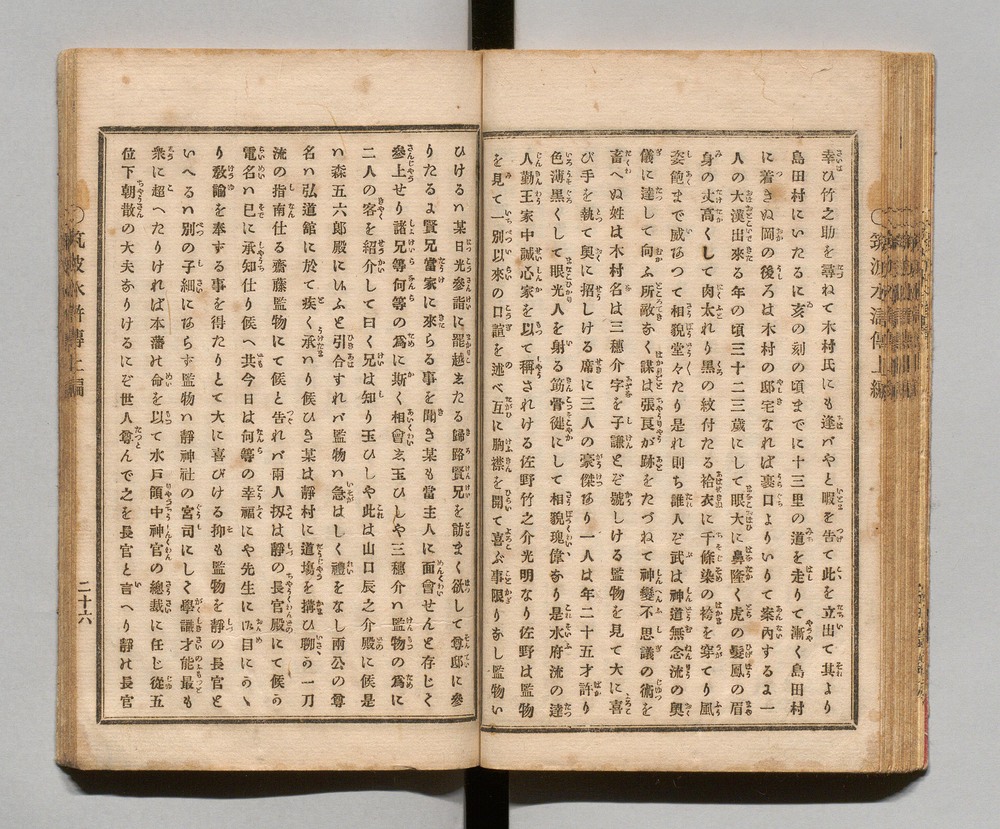 幸ひ竹之助を尋ねて木村氏にも逢バやと暇を告て此を立出て其より
島田村にいたるに亥の刻の頃までに十三里の道を走りて漸く島田村
に着きぬ岡の後ろは木村の邸宅なれば裏口よりいりて案內するよ一
人の大漢出來る年の頃三十二三歲にして眼大に鼻隆く虎の髮鳳の眉
身の丈高くして肉太れり黑の紋付たる袷衣に千條染の袴を穿てり風
姿飽まで威あつて相貌堂々たり是れ則ち誰人ぞ武は神道無念流の奧
儀に達して向ふ所敵なく謀は張良が跡をたづねて神變不思議の術を
畜へぬ姓は木村名は三穗介字を子謙とぞ號しける監物を見て大に喜
び手を執て奧に招しける席に三人の豪傑あり一人は年二十五才許り
色薄黑くして眼光人を射る筋骨徤にして相貌瑰偉なり是水府流の達
人勤王家中誠心家を以て稱されける佐野竹之介光明なり佐野は監物
を見て一別以來の口誼を述べ互に胸襟を開て喜ぶ事限りなし監物い
ひけるハ某日光參詣に罷越またる歸路賢兄を訪まく欲して尊邸に參
りたるよ賢兄當家に來らる事を聞き某も當主人に面會せんと存じく
參上せり諸兄等何等の爲に斯く相會ま玉ひしや三穗介ハ監物の爲に
二人の客を紹介して曰く兄は知り玉ひしや此は山口辰之介殿に候是
ハ森五六郞殿にいふと引合すれバ監物ハ急はしく禮をなし兩公の尊
名ハ弘道館に於て疾く承ハり候ひき某は靜村に道塲を搆ひ聊う一刀
流の指南仕る齋藤監物にて候と告れバ兩人扨は靜の長官殿にて候う
電名ハ已に承知仕り候へ共今日は何等の幸福にや先生にお目にうゝ
り敎諭を奉する事を得たりとて大に喜びける抑も監物を靜の長官と
いへるハ別の子細にあらす監物ハ靜神社の宮司にしく學識才能最も
衆に超へたりければ本藩の命を以て水戶領中神官の總裁に任じ從五
位下朝散の大夫なりけるにぞ世人尊んで之を長官と言へり靜の長官
筑波水滸傳上編
二十六